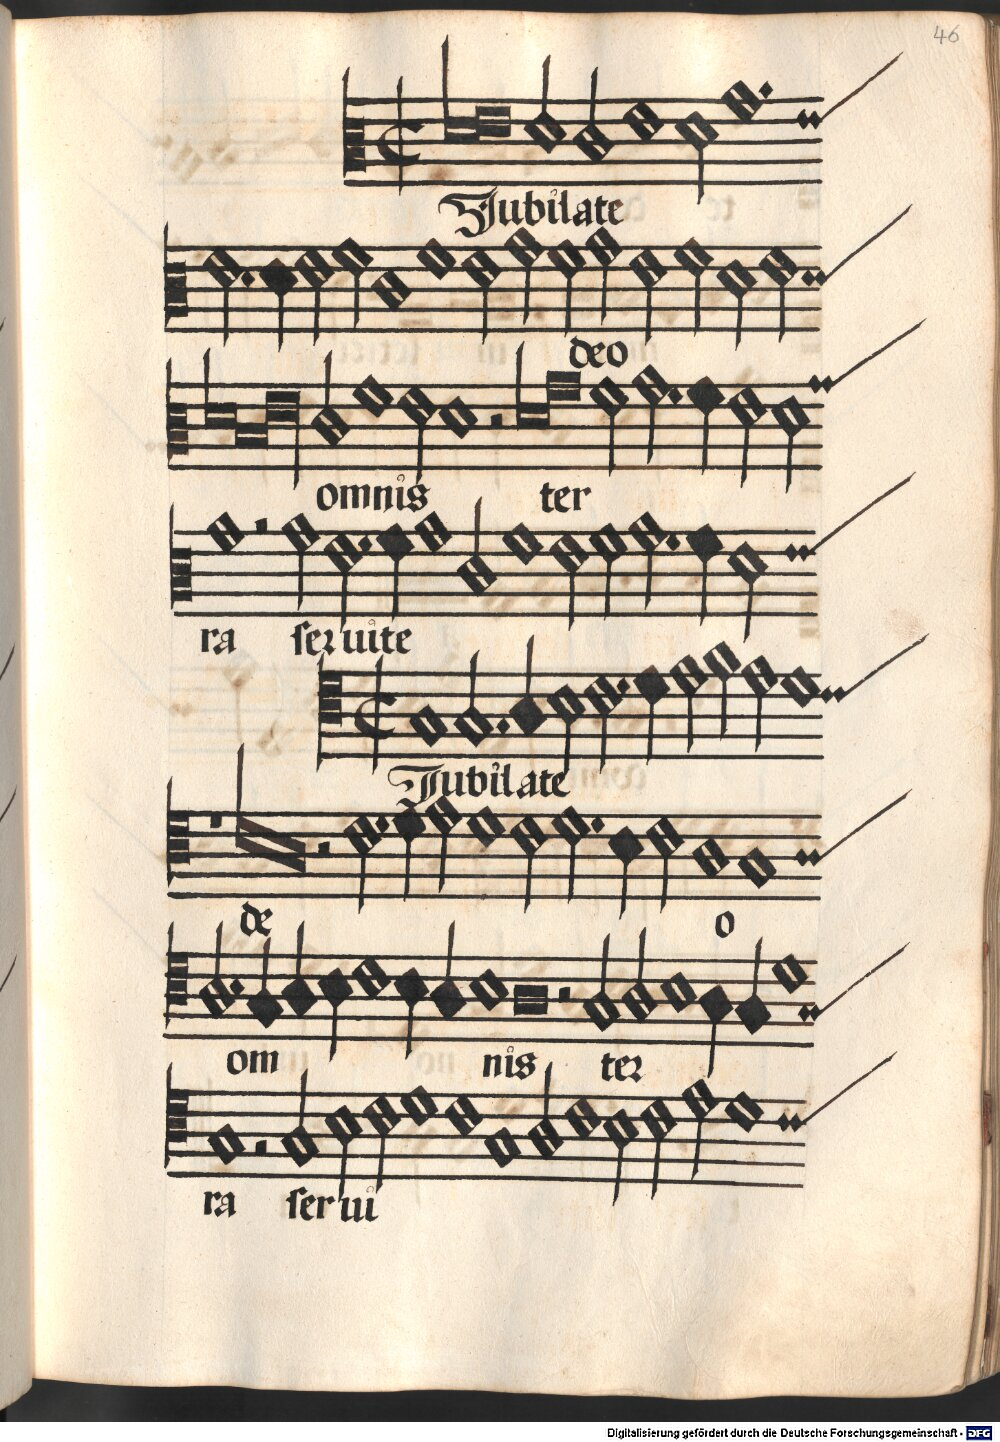 46
Jubilate
deo
omnis ter
ra seruite
Jubilate
de o
om nis ter
ra serui
Digitalisierung gefördert durch die Deutsche Forschungsgemeinschaft - DFG